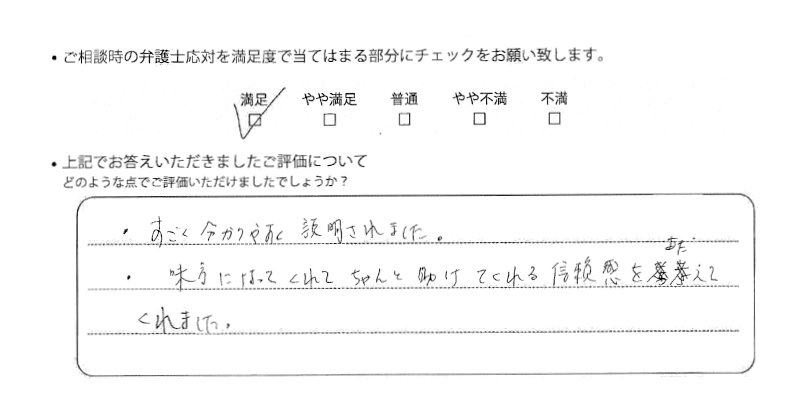 ・ご相談時の弁護士応対を満足度で当てはまる部分にチェックをお願い致します。
満足 やや満足 普通 やや不満 不満
☑ □ □ □ □
・上記でお答えいただきましたご評価について
どのような点でご評価いただけましたでしょうか？
・すごく分かりやすく説明されました。
・味方になってくれてちゃんと助けてくれる信頼感を えて
あた
くれました。